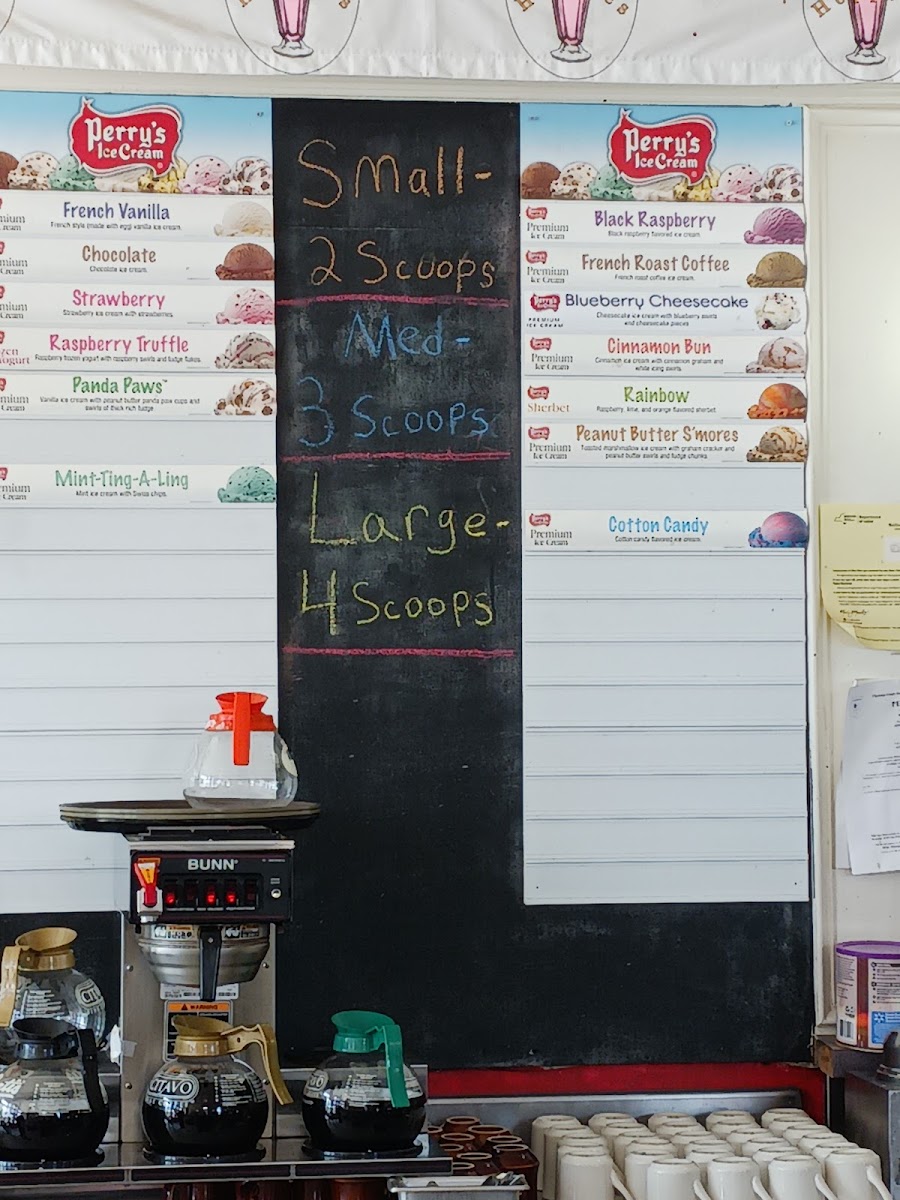 Perry's
Ice Cream
French Vanilla
French style (made with egg) vanilla ice cream.
Chocolate
Chocolate ice cream.
Strawberry
Strawberry ice cream with strawberries.
Raspberry Truffle
Raspberry frozen yogurt with raspberry swirls and fudge flakes.
Panda Paws™
Vanilla ice cream with peanut butter panda paw cups and
swirls of thick rich fudge.
Mint-Ting-A-Ling
Mint ice cream with Swiss chips.
Small-
2 Scoops
Med-
3 Scoops
Large-
4 Scoops
Perry's
Ice Cream
Premium
Ice Cream
Black Raspberry
Black raspberry flavored ice cream.
Premium
Ice Cream
French Roast Coffee
French roast coffee ice cream.
Perry's
PREMIUM
ICE CREAM
Blueberry Cheesecake
Cheesecake ice cream with blueberry swirls
and cheesecake pieces
Premium
Ice Cream
Cinnamon Bun
Cinnamon ice cream with cinnamon graham and
white icing swirls
Sherbet
Rainbow
Raspberry, lime, and orange flavored sherbet.
Premium
Ice Cream
Peanut Butter S'mores
Toasted marshmallow ice cream with graham cracker and
peanut butter swirls and fudge chunks.
Premium
Ice Cream
Cotton Candy
Cotton candy flavored ice cream.
BUNN
WARNING